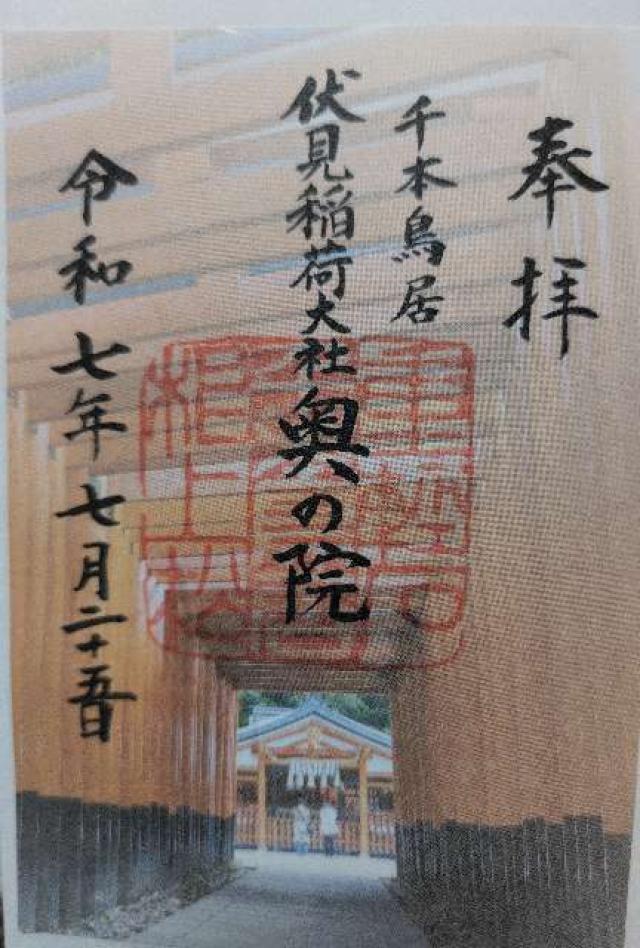 奉拝
千本鳥居
伏見稲荷大社奥の院
令和七年七月二十五日